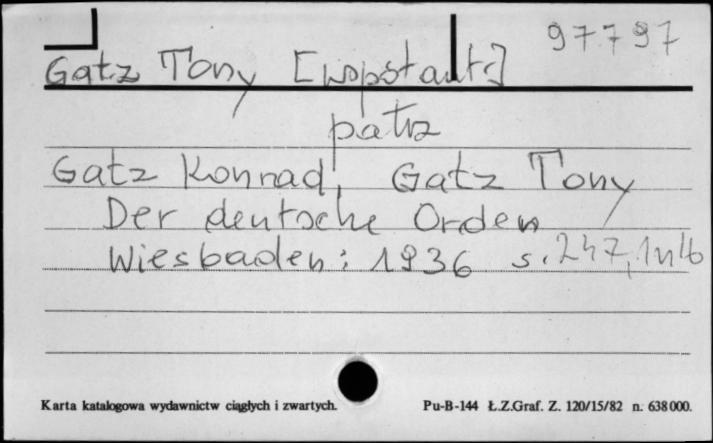 97797
Gatz Tony [współaut.]
patrz
Gatz Konrad, Gatz Tony
Der deutsche Orden
Wiesbaden: 1936 s. 247, 1 nlb
Karta katalogowa wydawnictw ciągłych i zwartych.
Pu-B-144 Ł.Z.Graf. Z. 120/15/82 n. 638 000.